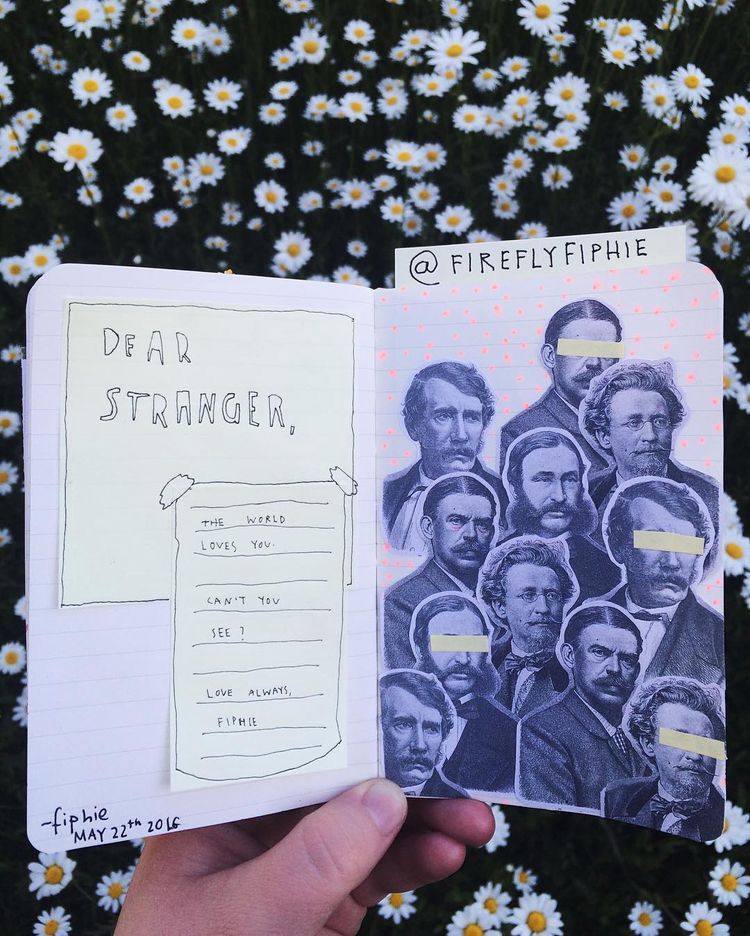 @ FIREFLYFIPHIE
DEAR
STRANGER,
THE WORLD
LOVES YOU.
CAN'T YOU
SEE?
LOVE ALWAYS,
FIPHIE
-fiphie
MAY 22th 2016